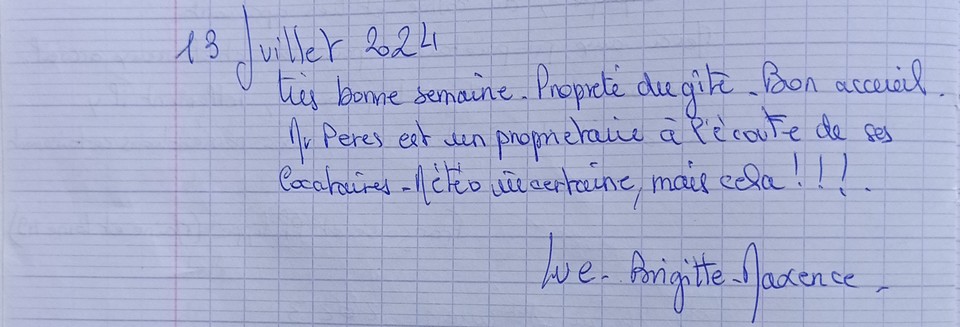 13 Juillet 2024
Très bonne semaine. Propreté du gîte. Bon accueil.
Mr Peres est un propriétaire à l'écoute de ses
locataires - Météo incertaine, mais cela !!!.
Luc - Brigitte - Maxence -